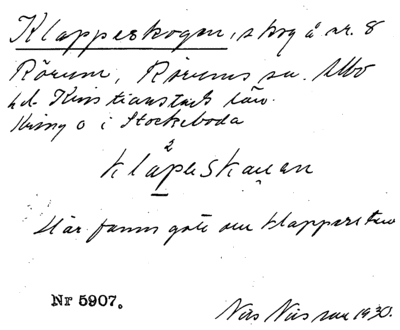 Klappeskogen, skog å nr. 8
Rörum, Rörums sn. Albo
hd. Kristianstads län.
Kring o i Stockeboda
2
klapeskauen
Här fanns gott om klapperstenar
Nr 5907.
Nils Nilsson 1930.